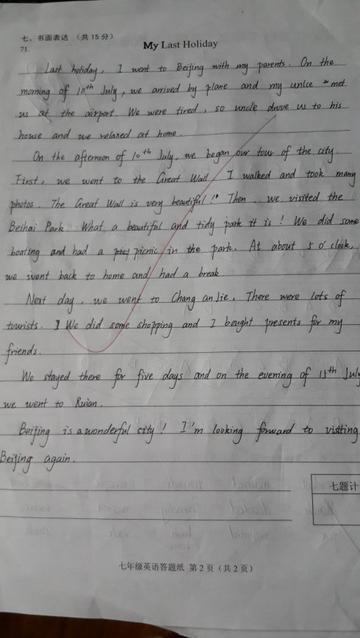 七、书面表达 （共 15 分）
71.
My Last Holiday
Last holiday, I went to Beijing with my parents. On the
morning of 10th July, we arrived by plane and my unlce met
us at the airport. We were tired, so uncle drove us to his
house and we relaxed at home.
On the afternoon of 10th July, we began our tour of the city.
First, we went to the Great Wall. I walked and took many
photos. The Great Wall is very beautiful! Then, we visited the
Beihai Park. What a beautiful and tidy park it is! We did some
boating and had a picnic in the park. At about 5 o'clock,
we went back to home and had a break.
Next day, we went to Chang an Jie. There were lots of
tourists. We did some shopping and I bought presents for my
friends.
We stayed there for five days and on the evening of 15th July
we went to Ruian.
Beijing is a wonderful city! I'm looking forward to visiting
Beijing again.
七题计
七年级英语答题纸 第 2 页（共 2 页）